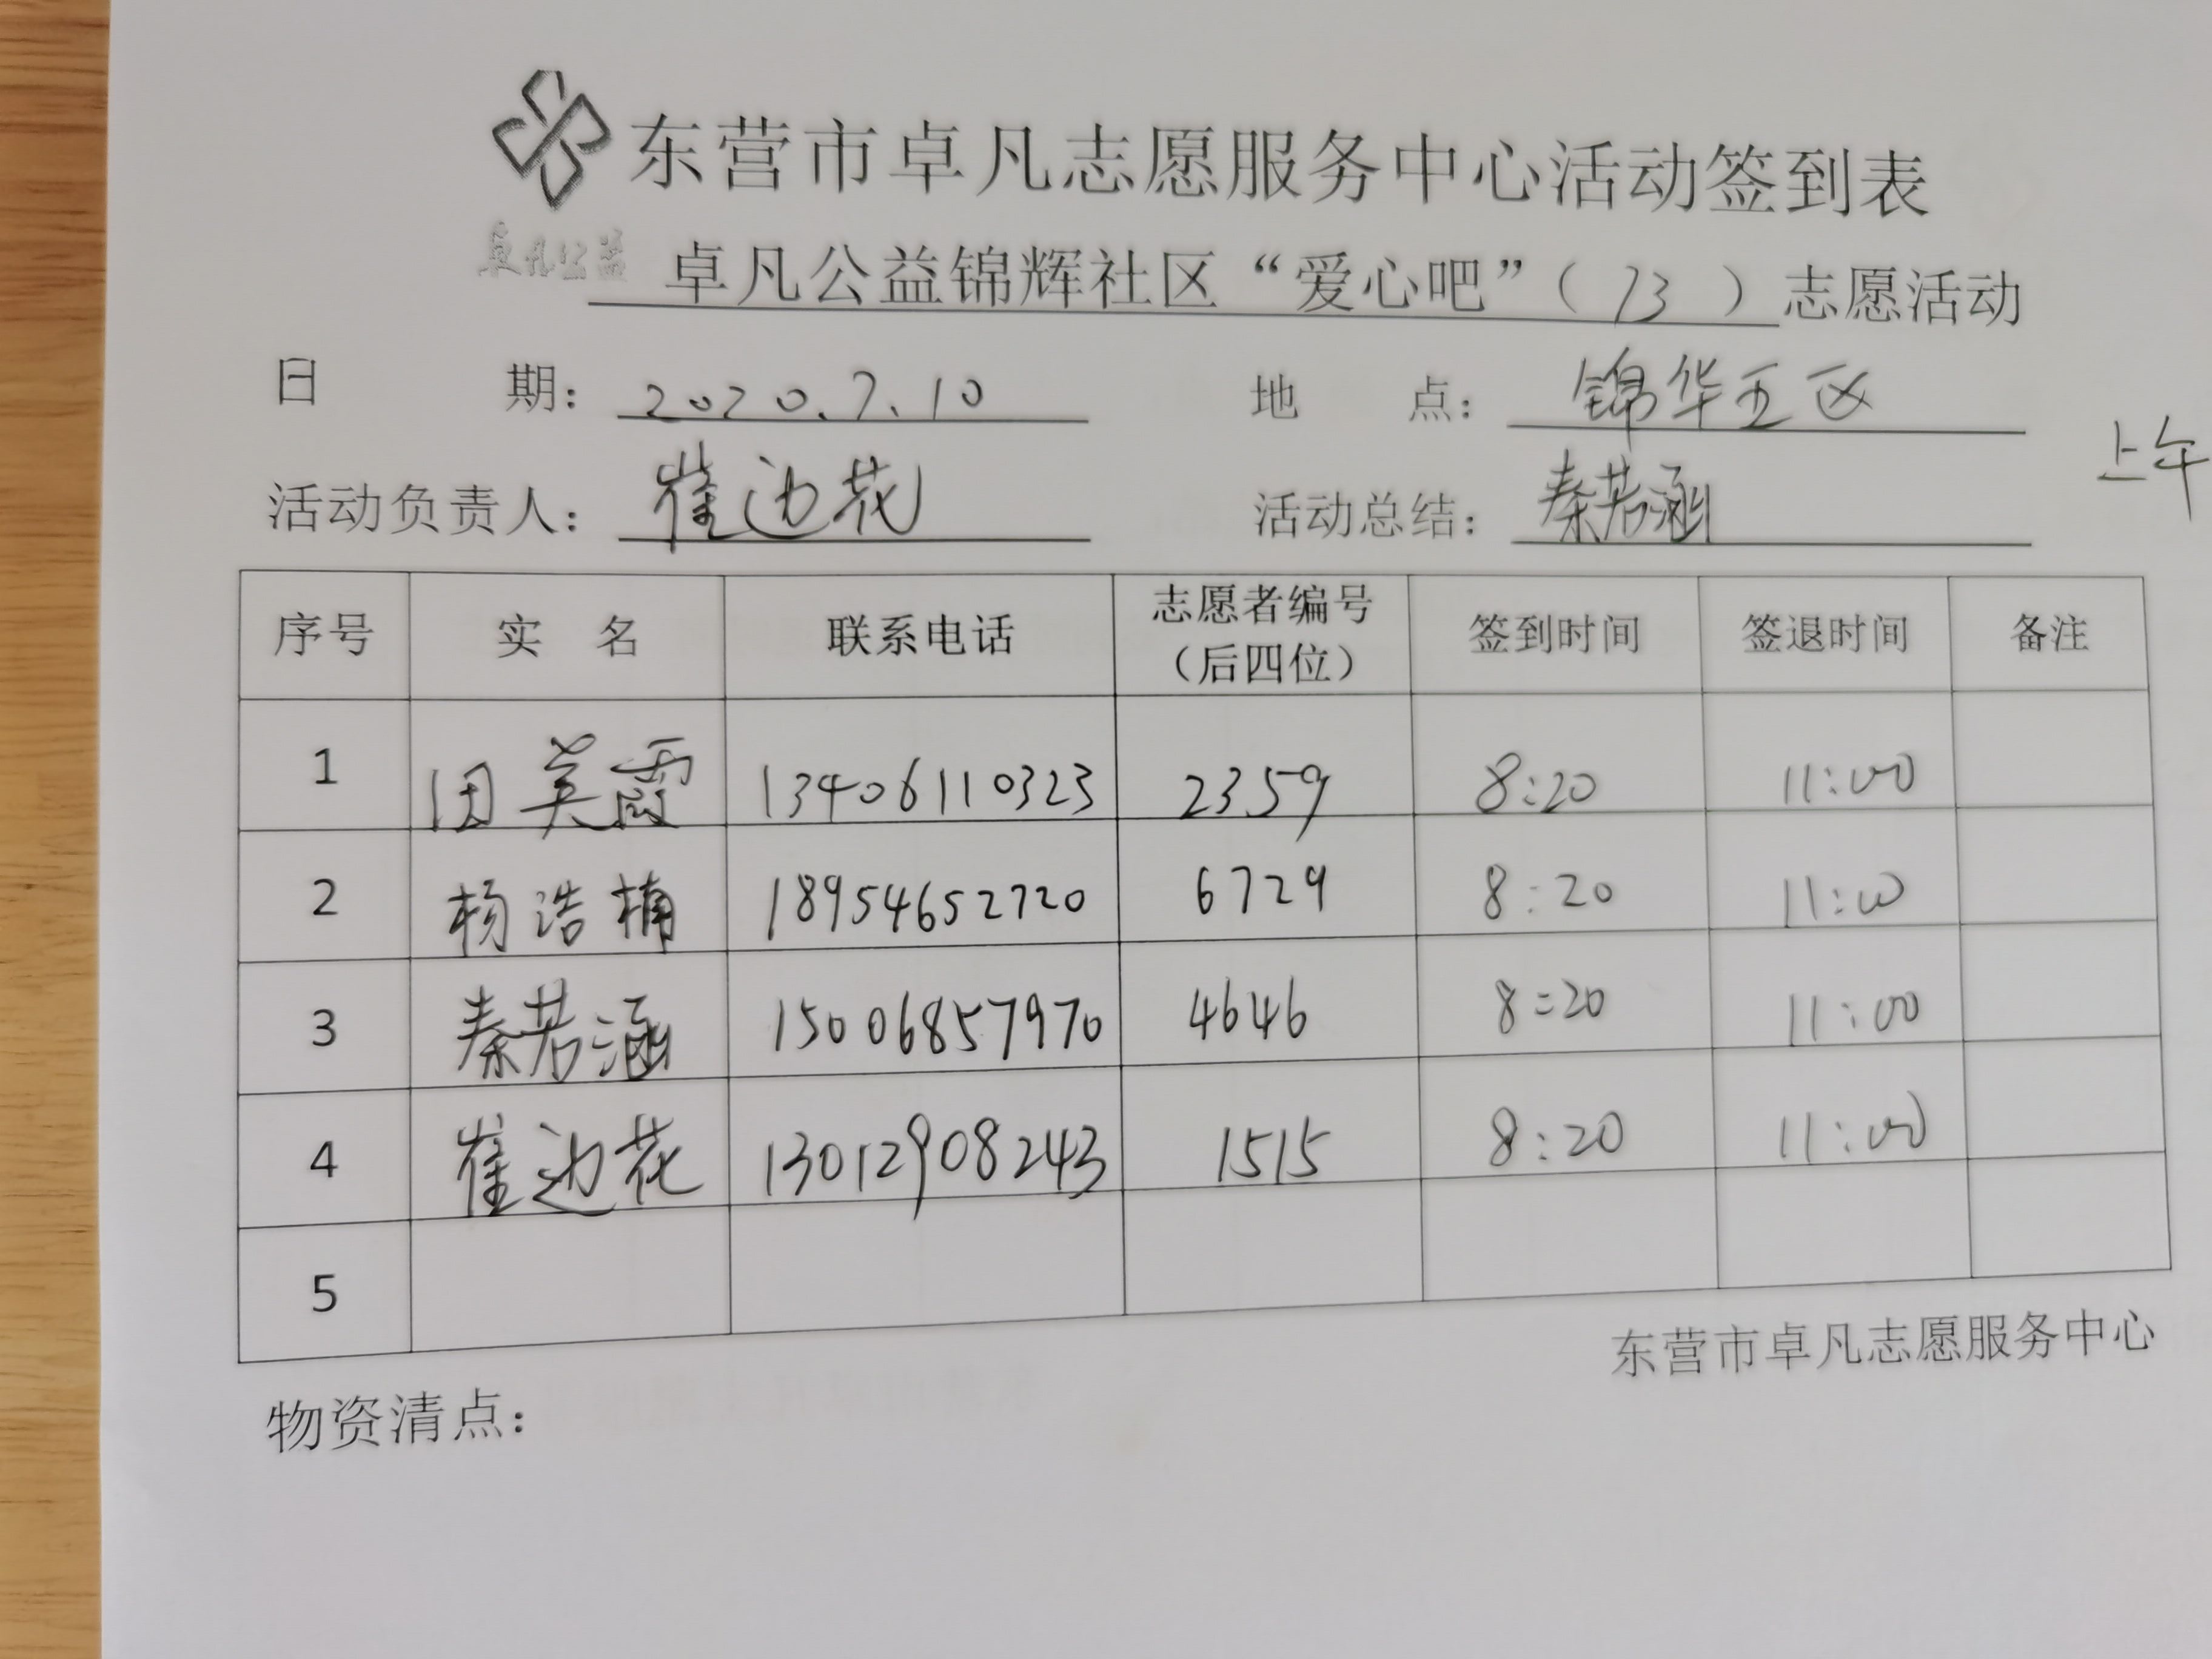 东营市卓凡志愿服务中心活动签到表
卓凡公益
卓凡公益锦辉社区“爱心吧”（13）志愿活动
日期：2020.7.10 地点：锦华五区
上午
活动负责人：崔边花 活动总结：秦若涵
序号 实名 联系电话 志愿者编号（后四位） 签到时间 签退时间 备注
1 田美霞 13406110323 2359 8:20 11:00
2 杨浩楠 18954652720 6729 8:20 11:00
3 秦若涵 15006857970 4646 8:20 11:00
4 崔边花 13012908243 1515 8:20 11:00
5
东营市卓凡志愿服务中心
物资清点：